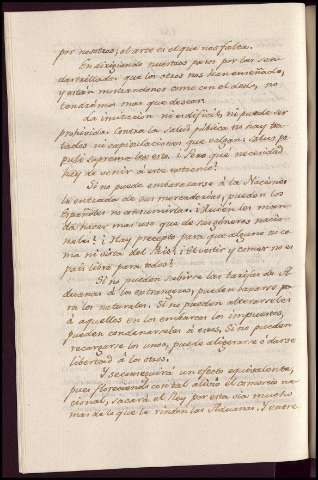 por nosotros; el arte es el que nos falta.
En dirigiendo nuestros pasos por las sen-
das trilladas que los otros nos han enseñado,
y están mostrandonos como con el dedo, no
tendrémos mas que desear.
La imitacion no es dificil, ni puede ser
prohivida. Contra la salud pública no hay tra-
tados ni capitulaciones que valgan: salus po-
puli suprema lex esta. ¿Pero qué necesidad
hay de venir á este extremo?
Si no puede embarazarse á las Naciones
la entrada de sus mercaderias, pueden los
Españoles no consumirlas. ¿Quién les man-
da hacer mas uso que de sus géneros nacio-
nales? ¿Hay precepto para que alguno se co-
ma ni vista del País? ¿El vestir y comer no es
país libre para todos?
Si no pueden subirse las tarifas de A-
duanas á los extrangeros, pueden baxarse pa-
ra los naturales. Si no pueden alterarseles
á aquellos en los embarcos los impuestos,
pueden condonarseles á estos. Si no pueden
recargarse los unos, puede aligerarse ó darse
libertad á los otros.
Y se conseguirá un efecto equivalente,
pues floreciendo con tal alivio el comercio na-
cional, sacará el Rey por esta via mucho
mas de lo que le rinden las Aduanas. Y entre